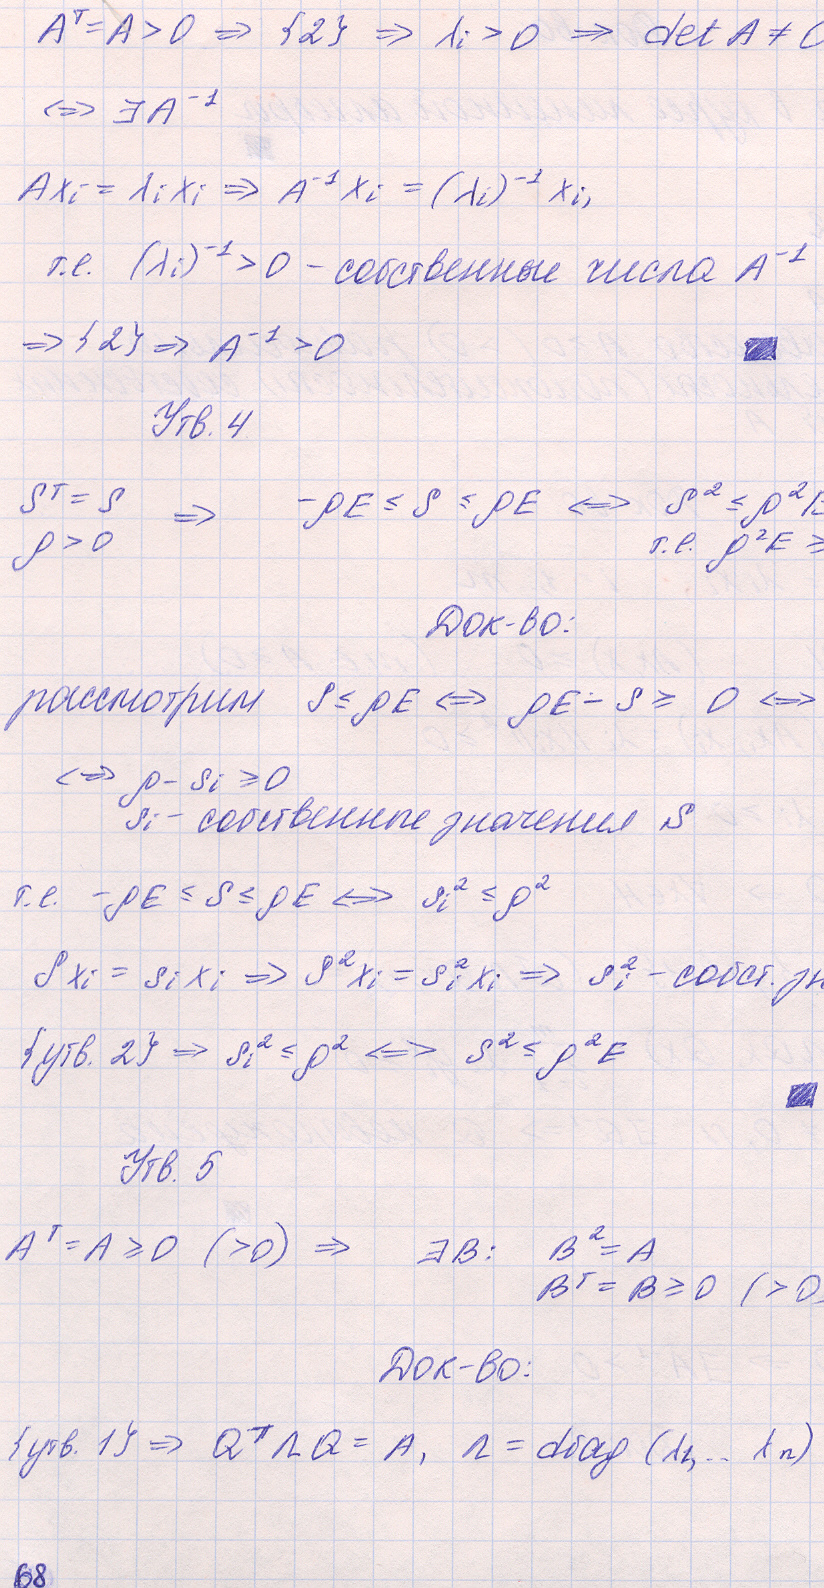 Aᵀ = A > 0 ⇒ {2} ⇒ λi > 0 ⇒ det A ≠ 0
⇔ ∃A⁻¹
Axi = λixi ⇒ A⁻¹xi = (λi)⁻¹xi,
т.е. (λi)⁻¹ > 0 – собственные числа A⁻¹
⇒ {2} ⇒ A⁻¹ > 0
Утв. 4
Sᵀ = S
ρ > 0 ⇒ -ρE ≤ S ≤ ρE ⇔ S² ≤ ρ²E
т.е. ρ²E ≥
Док-во:
рассмотрим S ≤ ρE ⇔ ρE - S ≥ 0 ⇔
⇔ ρ - si ≥ 0
si – собственные значения S
т.е. -ρE ≤ S ≤ ρE ⇔ si² ≤ ρ²
Sxi = sixi ⇒ S²xi = si²xi ⇒ si² – собст. зн
{утв. 2} ⇒ si² ≤ ρ² ⇔ S² ≤ ρ²E
Утв. 5
Aᵀ = A ≥ 0 (>0) ⇒ ∃B: B² = A
Bᵀ = B ≥ 0 (>0)
Док-во:
{утв. 1} ⇒ QᵀΛQ = A, Λ = diag (λ1,.. λn)
68